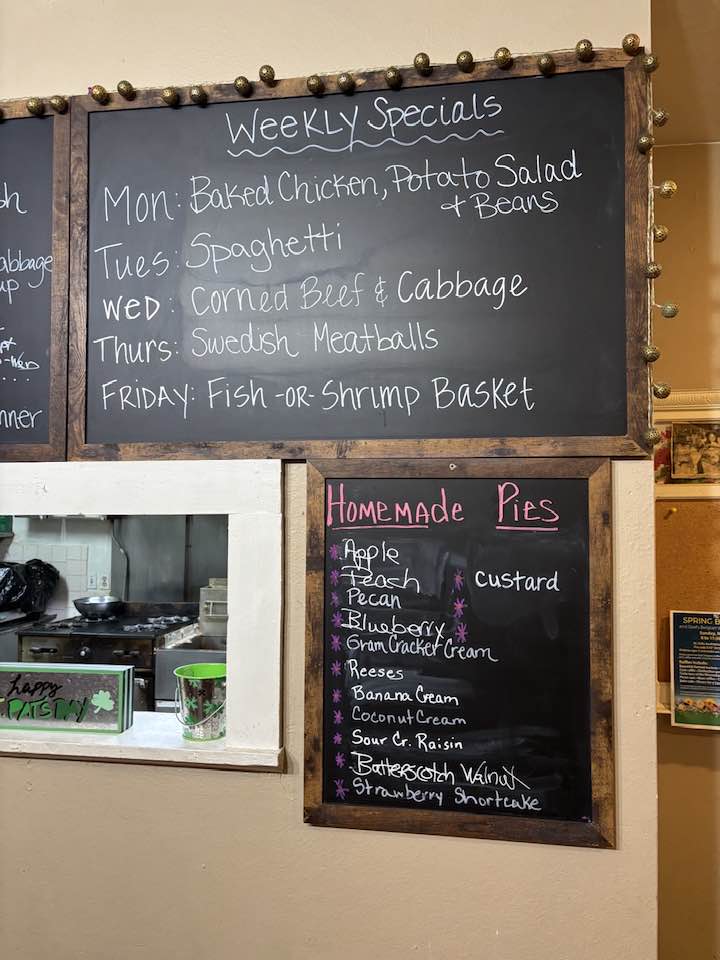 Weekly Specials
Mon: Baked Chicken, Potato Salad
+ Beans
Tues: Spaghetti
WED: Corned Beef & Cabbage
Thurs: Swedish Meatballs
FRIDAY: Fish -OR- Shrimp Basket
abbage
nner
HOMEMADE PIES
Apple
Peach
custard
Pecan
Blueberry
Gram Cracker Cream
Reeses
Banana Cream
Coconut Cream
Sour Cr. Raisin
Butterscotch Walnut
Strawberry Shortcake
happy
PATS DAY
SPRING B